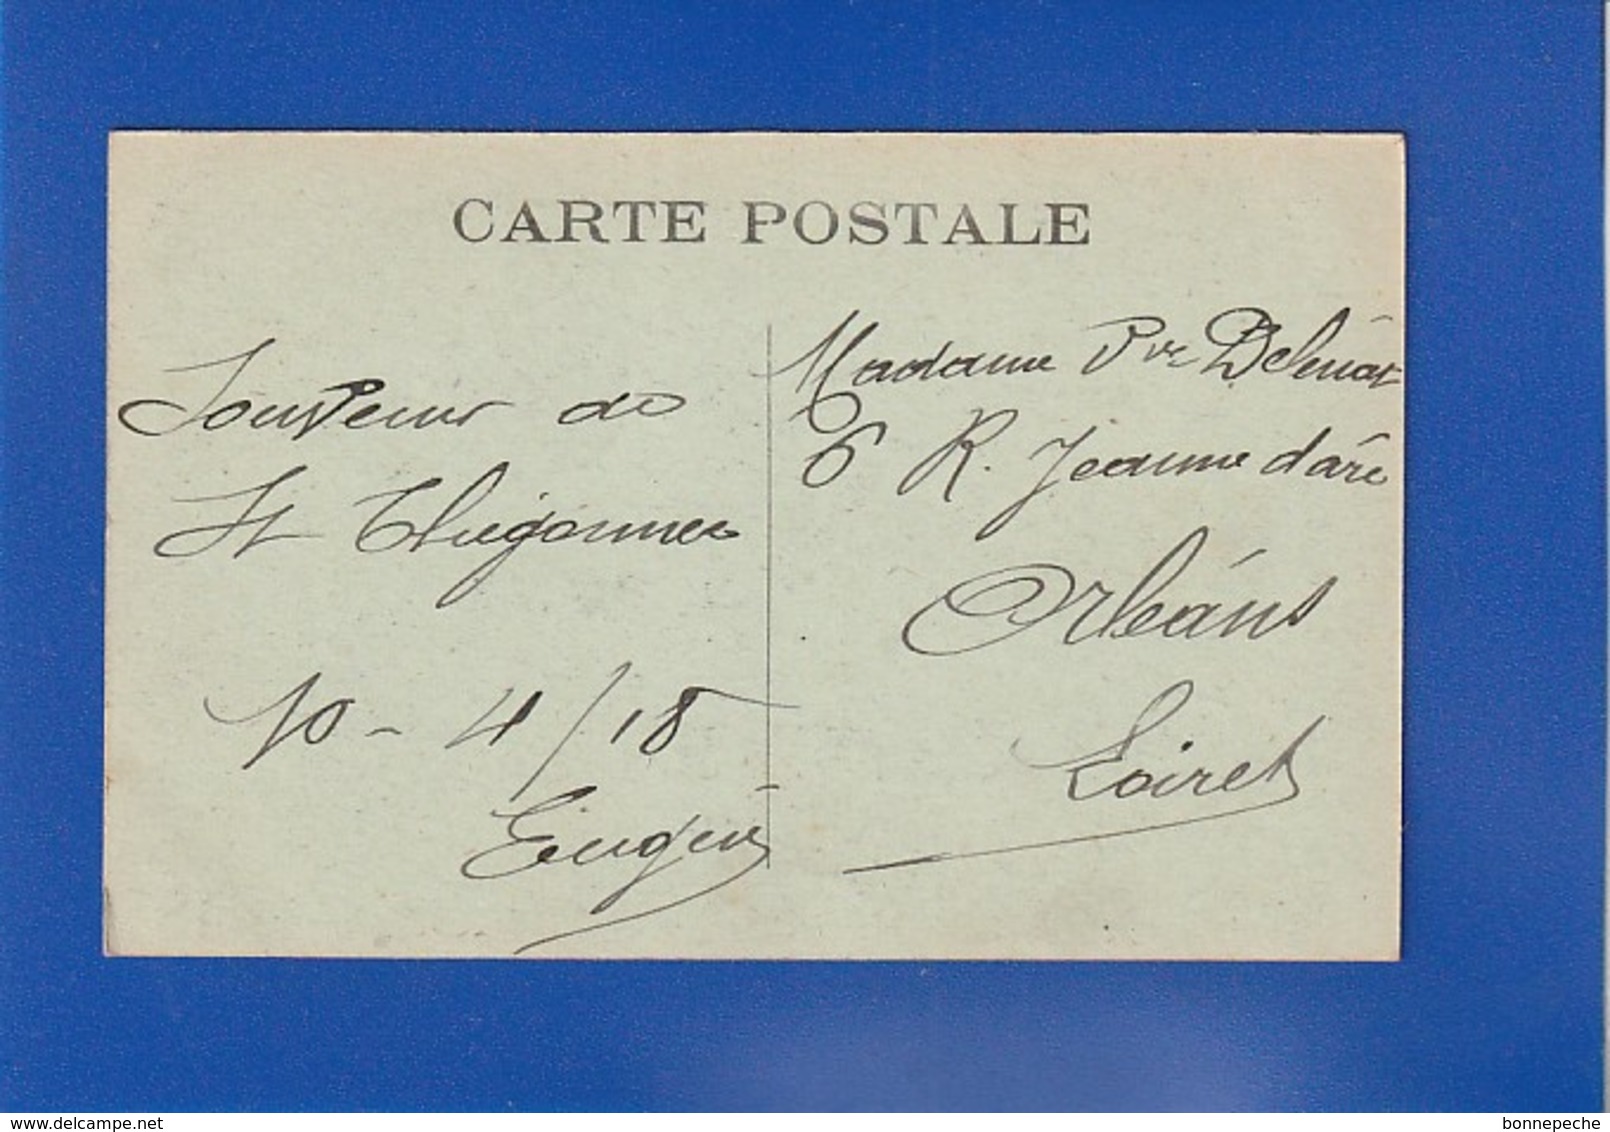 CARTE POSTALE
Souvenir de
St Thégonnec
10 - 4/18
Eugène
Madame Vve
6 R. Jeanne d'arc
Orléans
Loiret
www.delcampe.net
bonnepeche